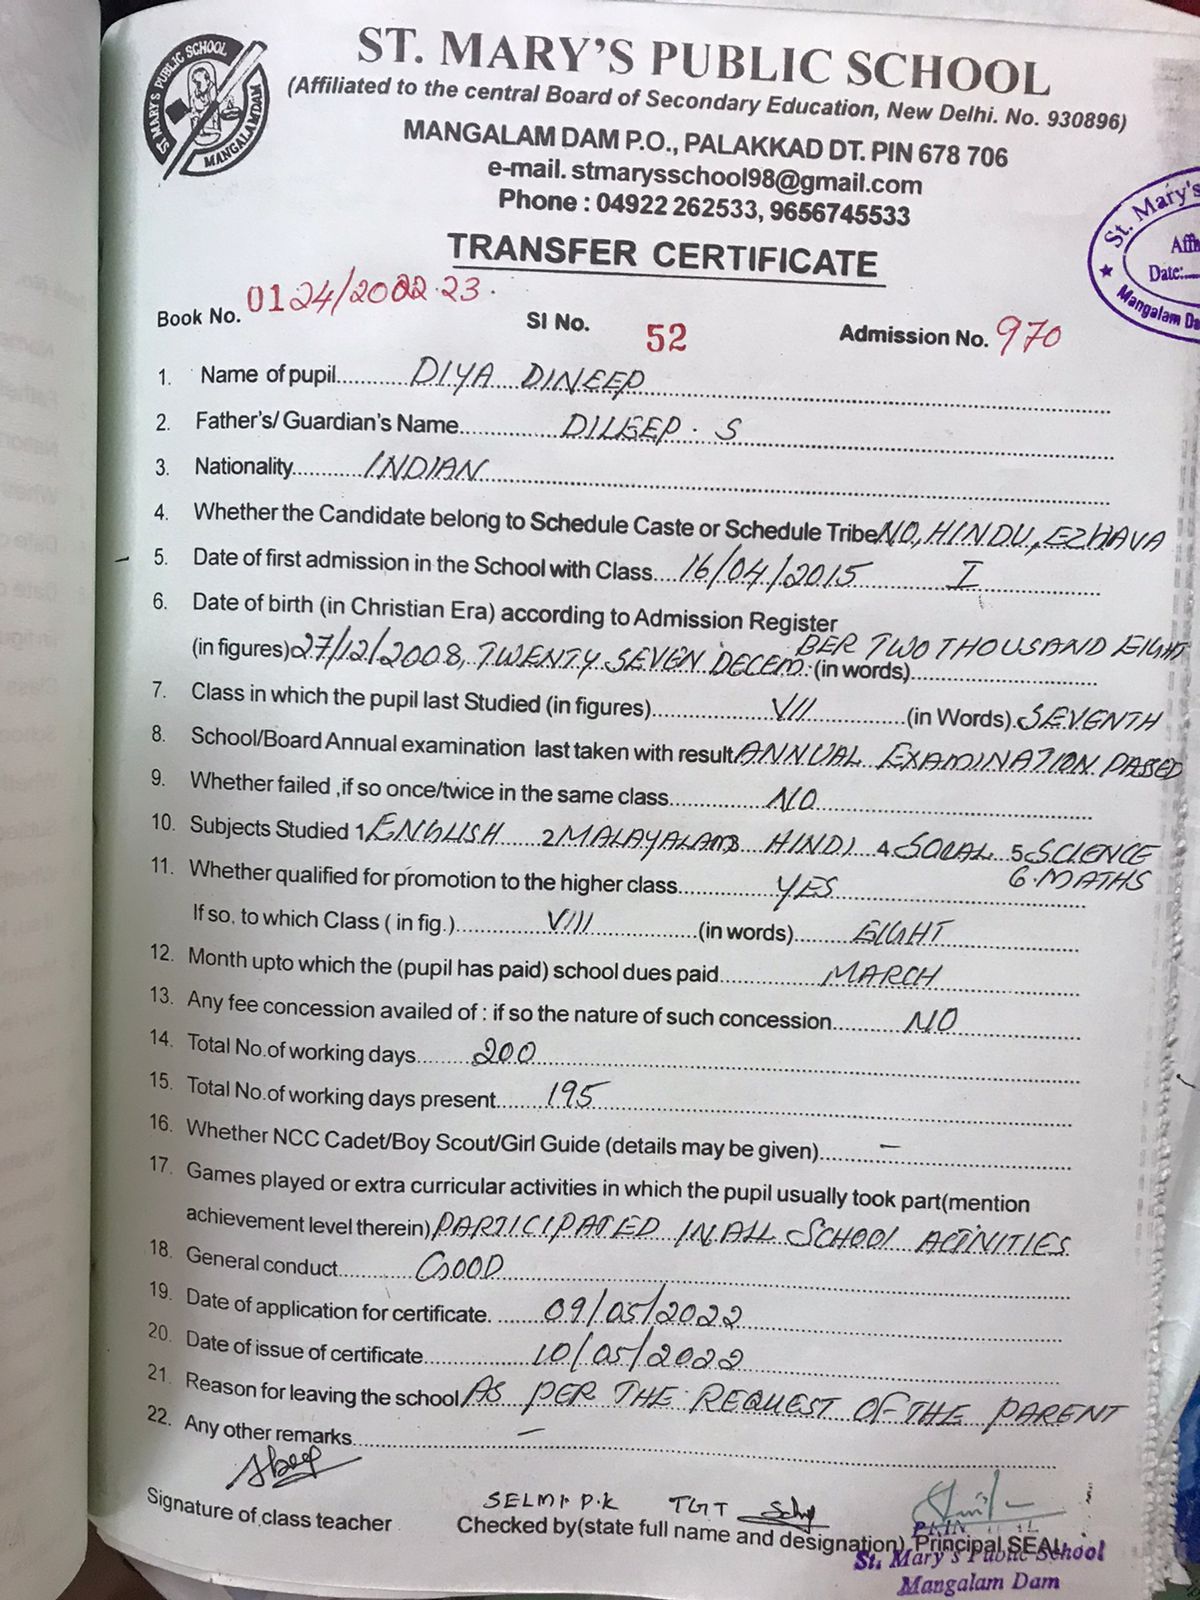 ST. MARY'S PUBLIC SCHOOL
MANGALAMDAM
ST. MARY'S PUBLIC SCHOOL
(Affiliated to the central Board of Secondary Education, New Delhi. No. 930896)
MANGALAM DAM P.O., PALAKKAD DT. PIN 678 706
e-mail. stmarysschool98@gmail.com
Phone : 04922 262533, 9656745533
St. Mary's
Date:
Mangalam Da
TRANSFER CERTIFICATE
Book No. 0124/2022-23. Sl No. 52 Admission No. 970
1. Name of pupil.......... DIYA DINEEP
2. Father's/ Guardian's Name.......... DILEEP. S
3. Nationality.......... INDIAN
4. Whether the Candidate belong to Schedule Caste or Schedule Tribe NO, HINDU, EZHAVA
5. Date of first admission in the School with Class.... 16/04/2015 I
6. Date of birth (in Christian Era) according to Admission Register
(in figures) 27/12/2008, TWENTY SEVEN DECEM. BER TWO THOUSAND EIGHT (in words)..........
7. Class in which the pupil last Studied (in figures).......... VII .......... (in Words). SEVENTH
8. School/Board Annual examination last taken with result ANNUAL EXAMINATION PASSED
9. Whether failed ,if so once/twice in the same class.......... NO
10. Subjects Studied 1 ENGLISH 2 MALAYALAM 3 HINDI 4 SOCIAL 5 SCIENCE
6. MATHS
11. Whether qualified for promotion to the higher class.......... YES
If so, to which Class ( in fig.).......... VIII .......... (in words).......... EIGHT
12. Month upto which the (pupil has paid) school dues paid.......... MARCH
13. Any fee concession availed of : if so the nature of such concession.......... NO
14. Total No.of working days.......... 200
15. Total No.of working days present.......... 195
16. Whether NCC Cadet/Boy Scout/Girl Guide (details may be given).......... –
17. Games played or extra curricular activities in which the pupil usually took part(mention
achievement level therein) PARTICIPATED IN ALL SCHOOL ACTINITIES
18. General conduct.......... GOOD
19. Date of application for certificate. .......... 09/05/2022
20. Date of issue of certificate.......... 10/05/2022
21. Reason for leaving the school AS PER THE REQUEST OF THE PARENT
22. Any other remarks.......... –
SELMI P.K TGT
Signature of class teacher Checked by(state full name and designation) Principal SEAL
St. Mary's Public School
Mangalam Dam